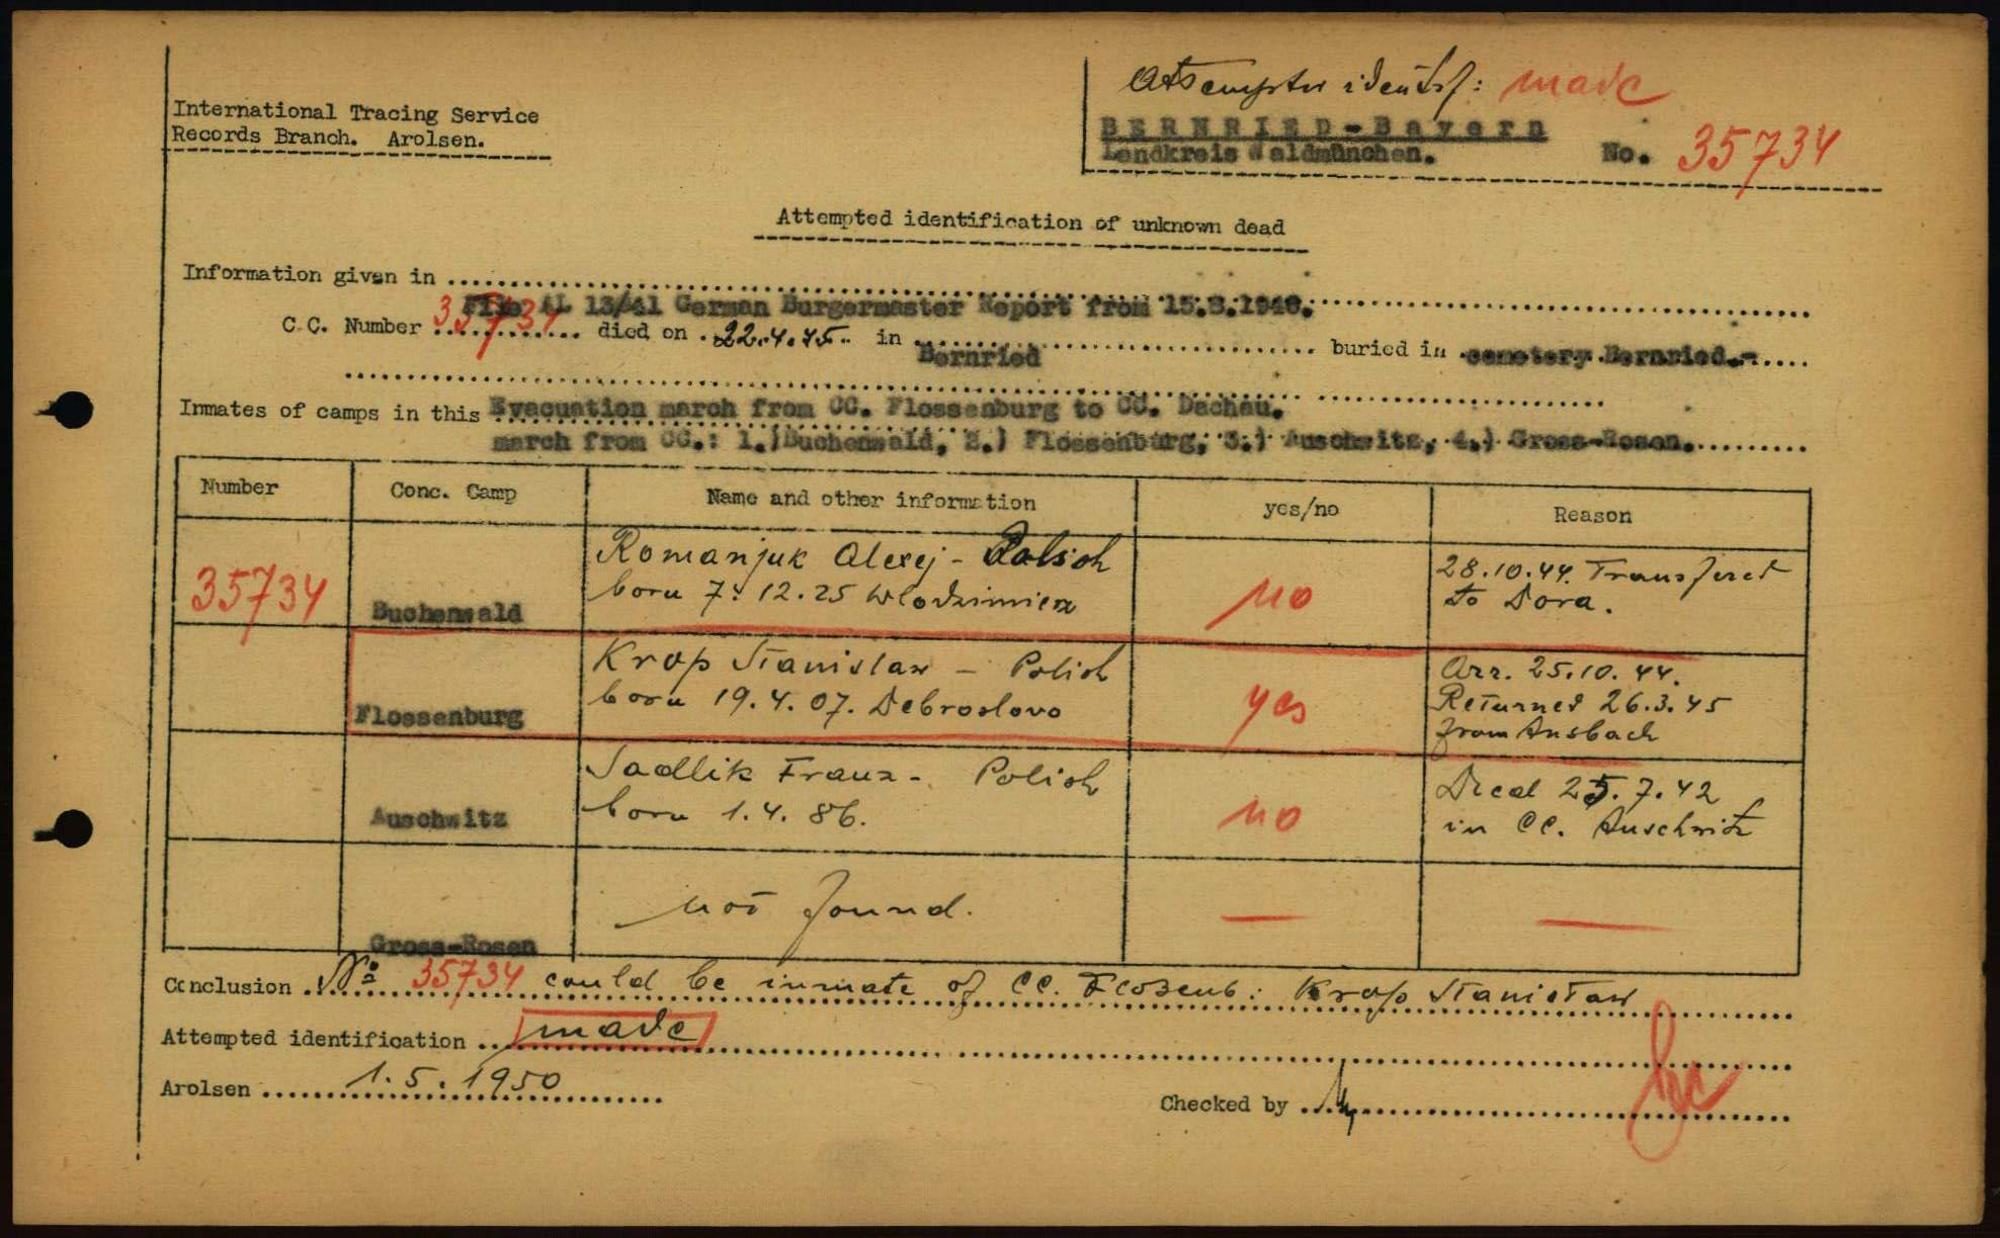 International Tracing Service
Records Branch. Arolsen.
Attempted identif: made
BERNRIED-Bayern
Landkreis Waldmünchen. No. 35734
Attempted identification of unknown dead
Information given in
File AL 13/41 German Burgermaster Report from 15.8.1946.
C.C. Number 35734 died on 22.4.45. in Bernried buried in cemetery Bernried.-
Inmates of camps in this Evacuation march from CC. Flossenburg to CC. Dachau.
march from CC.: 1.)Buchenwald, 2.) Flossenburg, 3.) Auschwitz, 4.) Gross-Rosen.
Number Conc. Camp Name and other information yes/no Reason
35734 Buchenwald Romanjuk Alexej - Polish
born 7. 12. 25 Wlodzimierz no 28.10.44. Transferet
to Dora.
Flossenburg Krop Stanislaw - Polish
born 19. 4. 07. Debroslovo yes Arr. 25.10.44.
Returnet 26.3.45
from Ansbach
Auschwitz Sadlik Franz - Polish
born 1. 4. 86. no Died 25.7.42
in CC. Auschwitz
Gross-Rosen not found. — —
Conclusion No 35734 could be inmate of CC. Flossenb: Krop Stanislaw
Attempted identification made
Arolsen 1.5.1950
Checked by